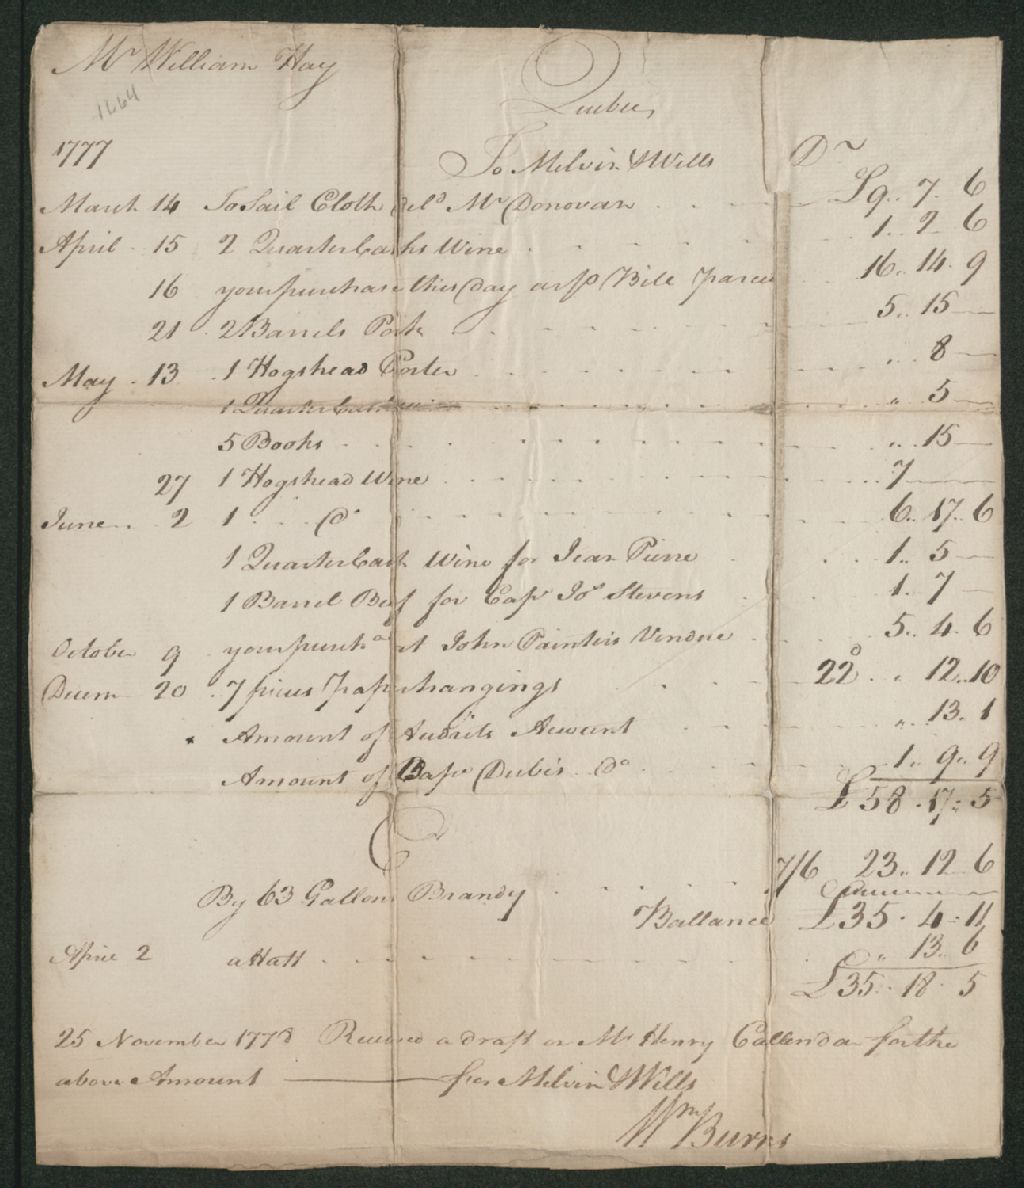 Mr William Hay
Quebec
1664
1777 To Melvin & Wills Dr
March 14 To Sail Cloth del'd Mr Donovan £9.. 7. 6
April 15 2 Quarter Casks Wine 1. 2. 6
16 your purchase this day as pr Bill parcel 16.. 14. 9
21 2 Barrels Pork 5.. 15 —
May 13 1 Hogshead Porter .. 8 —
1 Quarter Cask .. 5 —
5 Books .. 15 —
27 1 Hogshead Wine 7
June 2 1 do 6.. 17. 6
1 Quarter Cask Wine for Jean Pierre 1.. 5 —
1 Barrel Beef for Capt Jos Stevens 1. 7 —
October 9 your purchs at John Painters Vendue 5.. 4. 6
Decem 20 7 pieces paper hangings 22d .. 12.. 10
Amount of Account .. 13. 1
Amount of Capt Dubis do 1.. 9.. 9
£58. 17. 5
Cr
By 63 Gallons Brandy 7/6 23.. 12. 6
Ballance £35. 4. 11
April 2 a Hatt .. 13. 6
£35. 18. 5
25 November 1778 Received a draft on Mr Henry Callendar for the
above Amount — for Melvin & Wills
Wm Burns